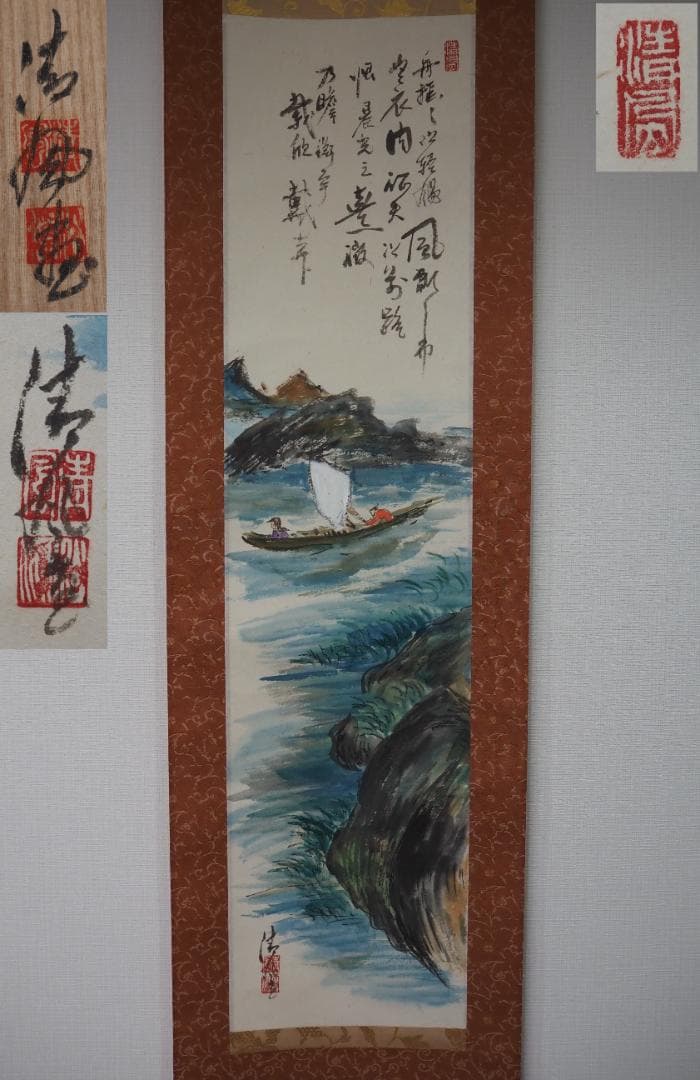 舟揺々以軽颺風飄々而
吹衣問征夫以前路
恨晨光之熹微
乃瞻衡宇
載欣載奔